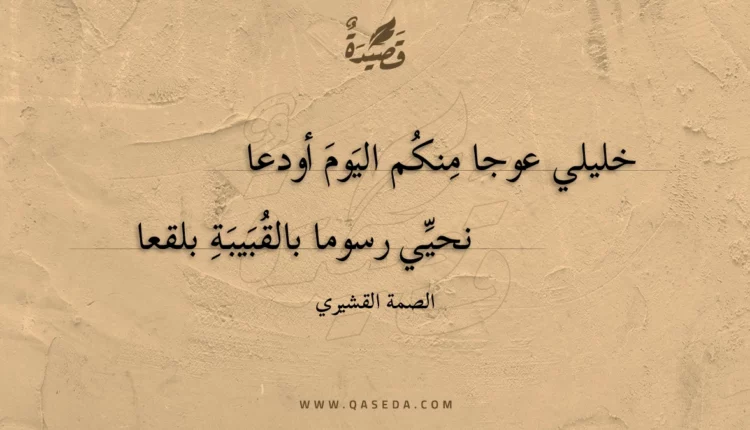 قَصِيدَةٌ
خليلي عوجا مِنكُم اليَومَ أودعا
نحيِّي رسوما بالقُبَيبَةِ بلقعا
الصمة القشيري
WWW.QASEDA.COM